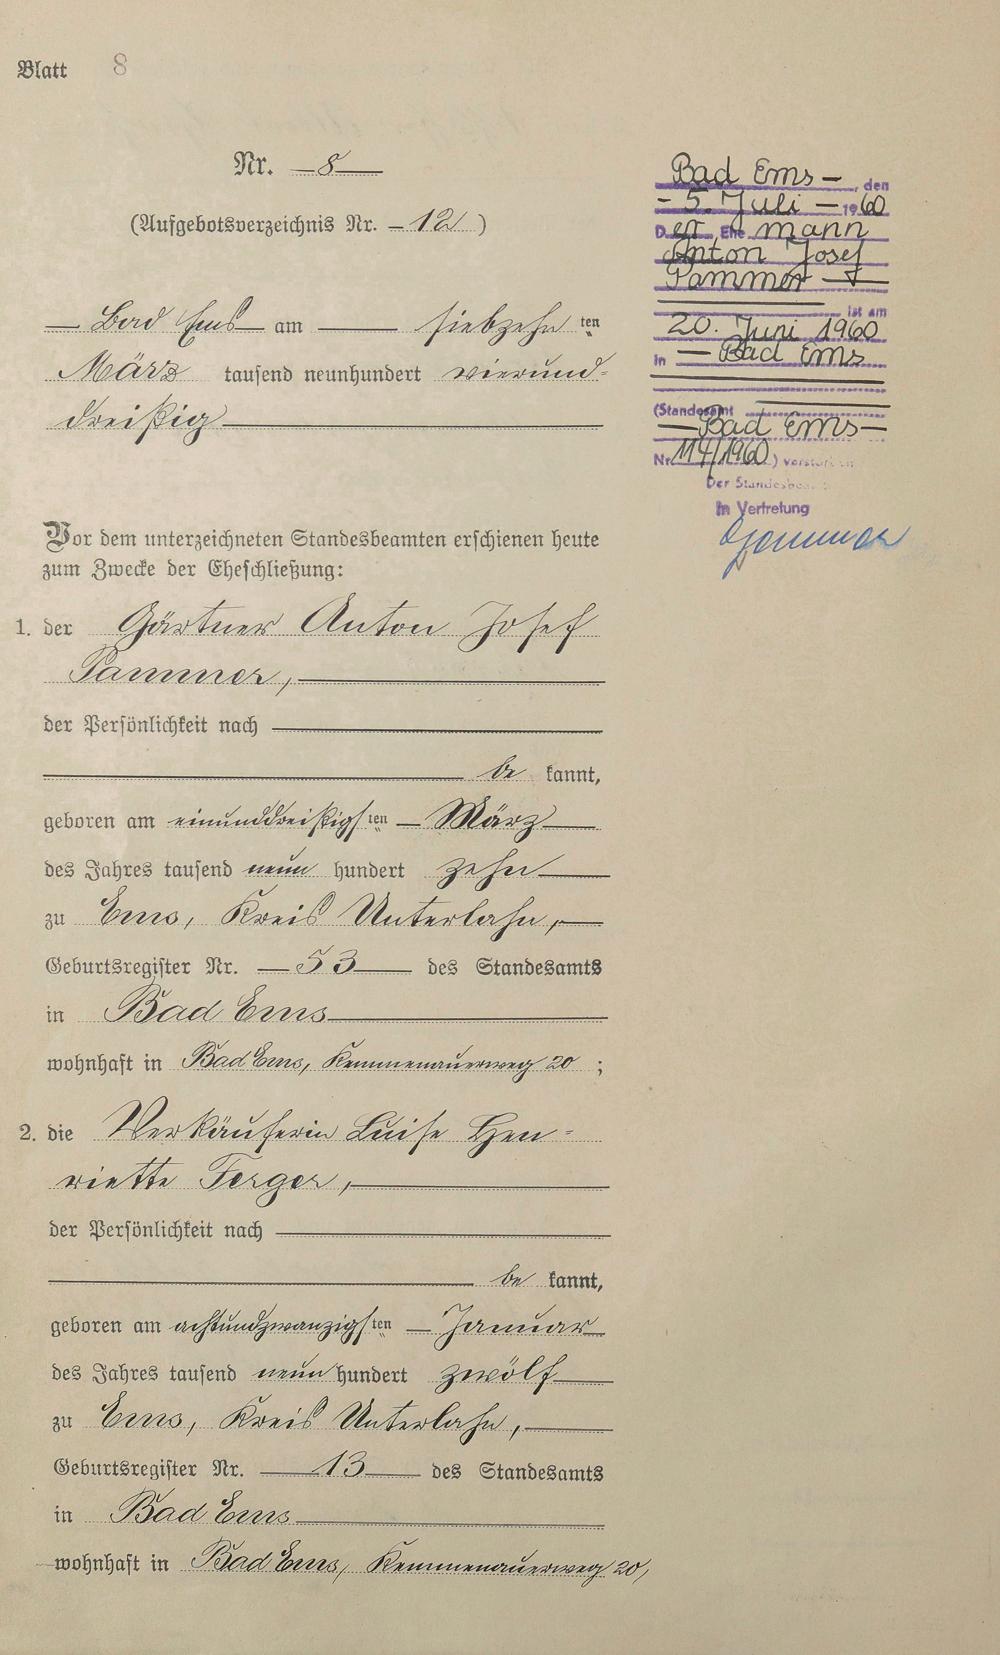 Blatt 8
Nr. 8
(Aufgebotsverzeichnis Nr. 12)
Bad Ems am siebzehn ten
März tausend neunhundert vierund-
dreißig
Vor dem unterzeichneten Standesbeamten erschienen heute
zum Zwecke der Eheschließung:
1. der Gärtner Anton Josef
Pammer,
der Persönlichkeit nach
be kannt,
geboren am einunddreißigs ten März
des Jahres tausend neun hundert zehn
zu Ems, Kreis Unterlahn,
Geburtsregister Nr. 53 des Standesamts
in Bad Ems
wohnhaft in Bad Ems, Kemmenauerweg 20;
2. die Verkäuferin Luise Hen-
riette Ferger,
der Persönlichkeit nach
be kannt,
geboren am achtundzwanzigs ten Januar
des Jahres tausend neun hundert zwölf
zu Ems, Kreis Unterlahn,
Geburtsregister Nr. 13 des Standesamts
in Bad Ems
wohnhaft in Bad Ems, Kemmenauerweg 20,
Bad Ems, den
- 5. Juli - 1960
Der Ehemann
Anton Josef
Pammer
ist am
20. Juni 1960
in Bad Ems
(Standesamt
Bad Ems
Nr. 114/1960) verstorben
Der Standesbeamte
In Vertretung